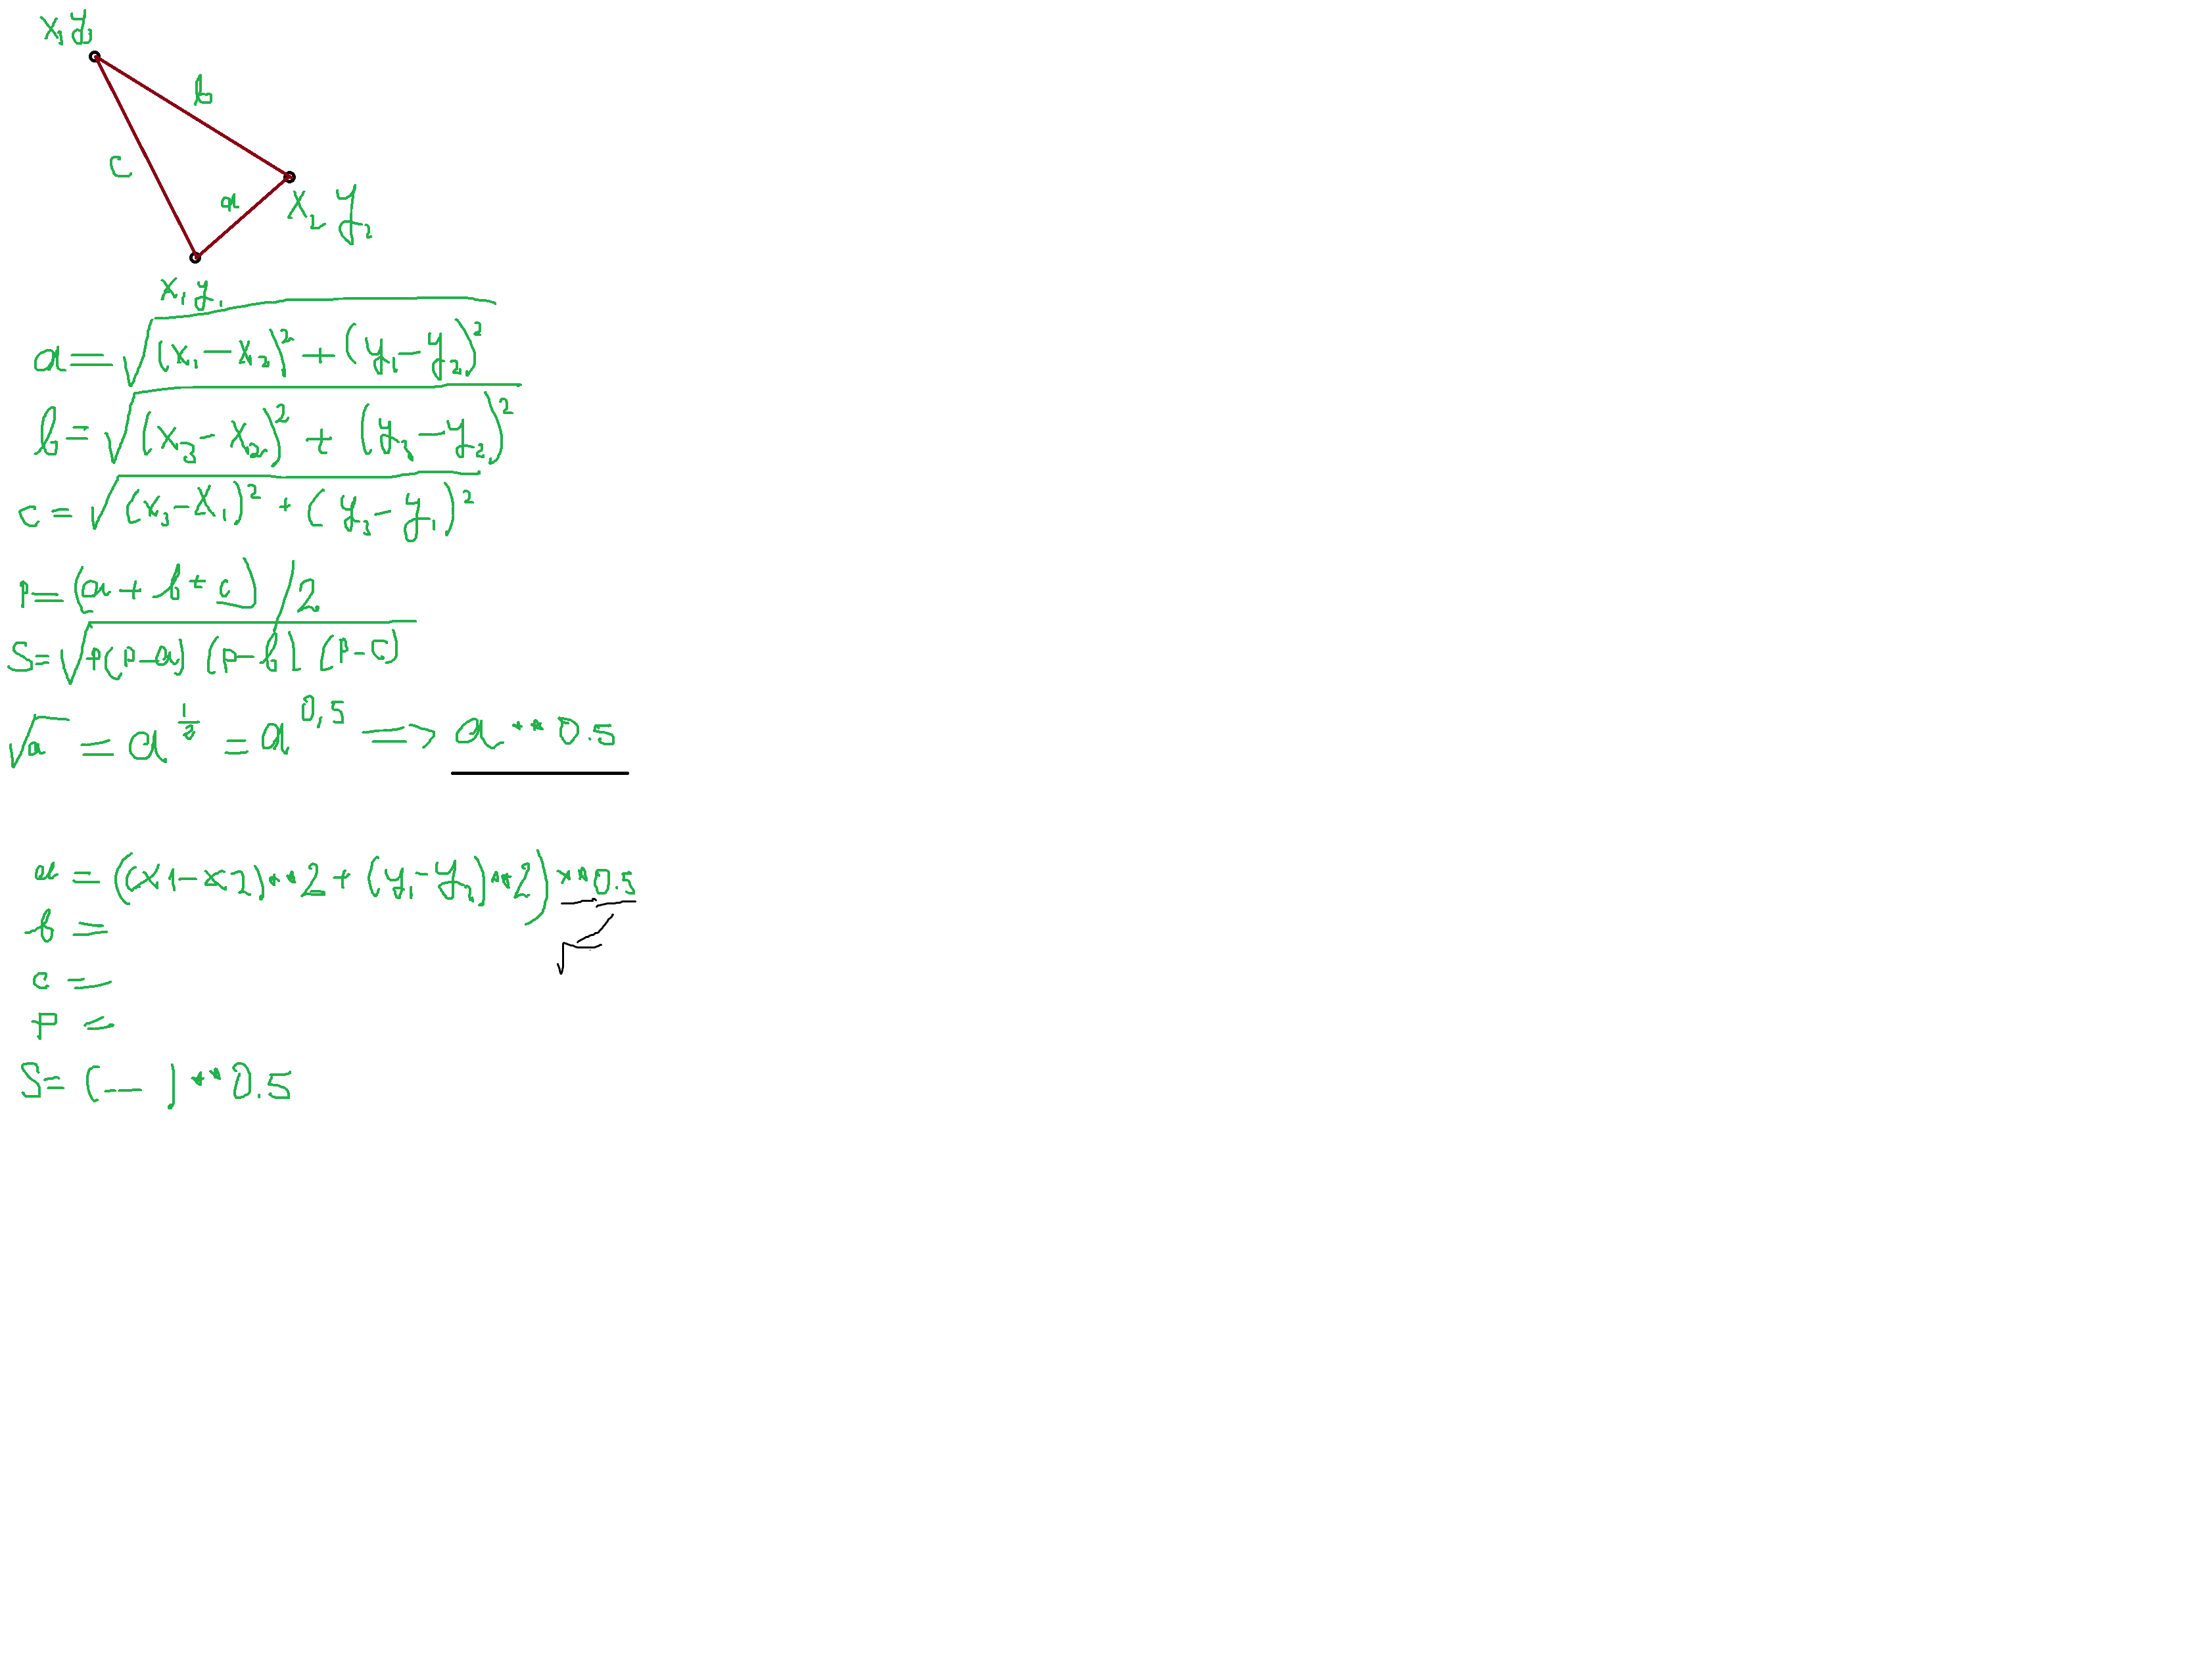 x₃ y₃
b
c
a
x₂ y₂
x₁ y₁
a = √((x₁ − x₂)² + (y₁ − y₂)²)
b = √((x₃ − x₂)² + (y₃ − y₂)²)
c = √((x₃ − x₁)² + (y₃ − y₁)²)
P = (a + b + c) / 2
S = √(P(P − a) (P − b) (P − c))
√a = a^(1/2) = a^(0,5) => a ** 0.5
a = ((x1 − x2) ** 2 + (y₁ − y₂) ** 2) ** 0.5
√
b =
c =
P =
S = (−−) ** 0.5